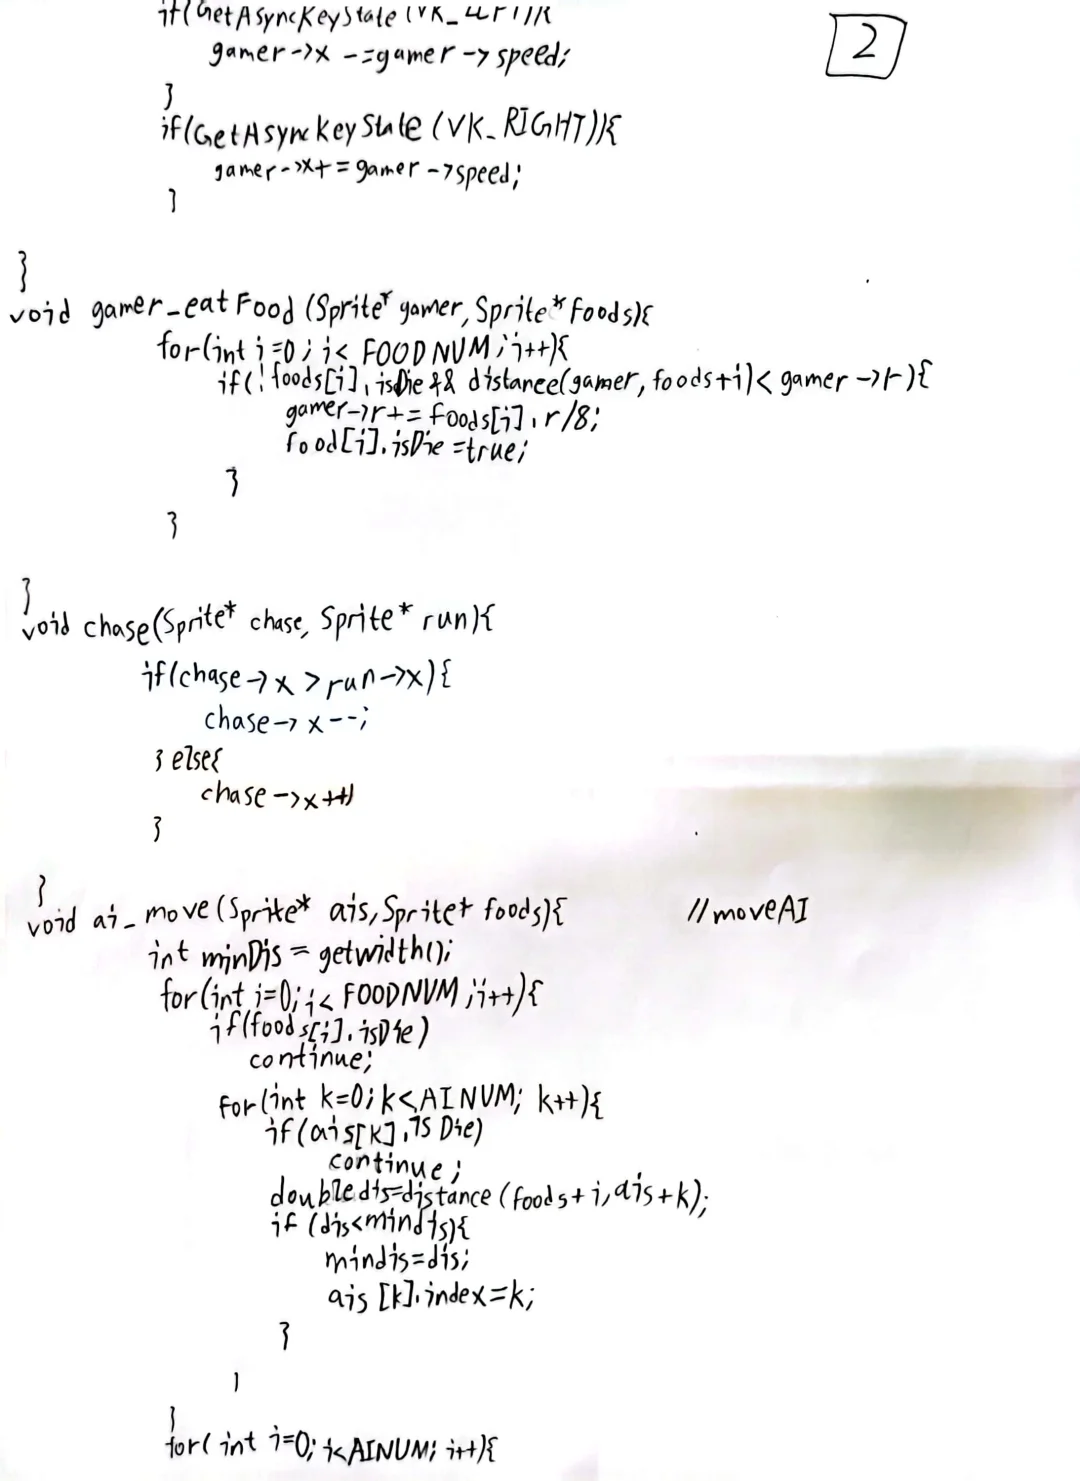 if(GetAsyncKeyState(VK_LEFT)){
2
gamer->x -=gamer->speed;
}
if(GetAsyncKeyState(VK_RIGHT)){
gamer->x+=gamer->speed;
}
}
void gamer_eatFood(Sprite* gamer, Sprite* foods){
for(int i=0; i< FOODNUM; i++){
if(!foods[i].isDie && distance(gamer, foods+i)< gamer->r){
gamer->r+= foods[i].r/8;
food[i].isDie=true;
}
}
}
void chase(Sprite* chase, Sprite* run){
if(chase->x >run->x){
chase->x--;
} else{
chase->x++;
}
}
void ai_move(Sprite* ais,Sprite* foods){ //moveAI
int minDis = getwidth();
for(int i=0;i< FOODNUM;i++){
if(foods[i].isDie)
continue;
for(int k=0;k<AINUM; k++){
if(ais[k].isDie)
continue;
double dis=distance(foods+i,ais+k);
if (dis<mindis){
mindis=dis;
ais[k].index=k;
}
}
}
for(int i=0; i<AINUM; i++){